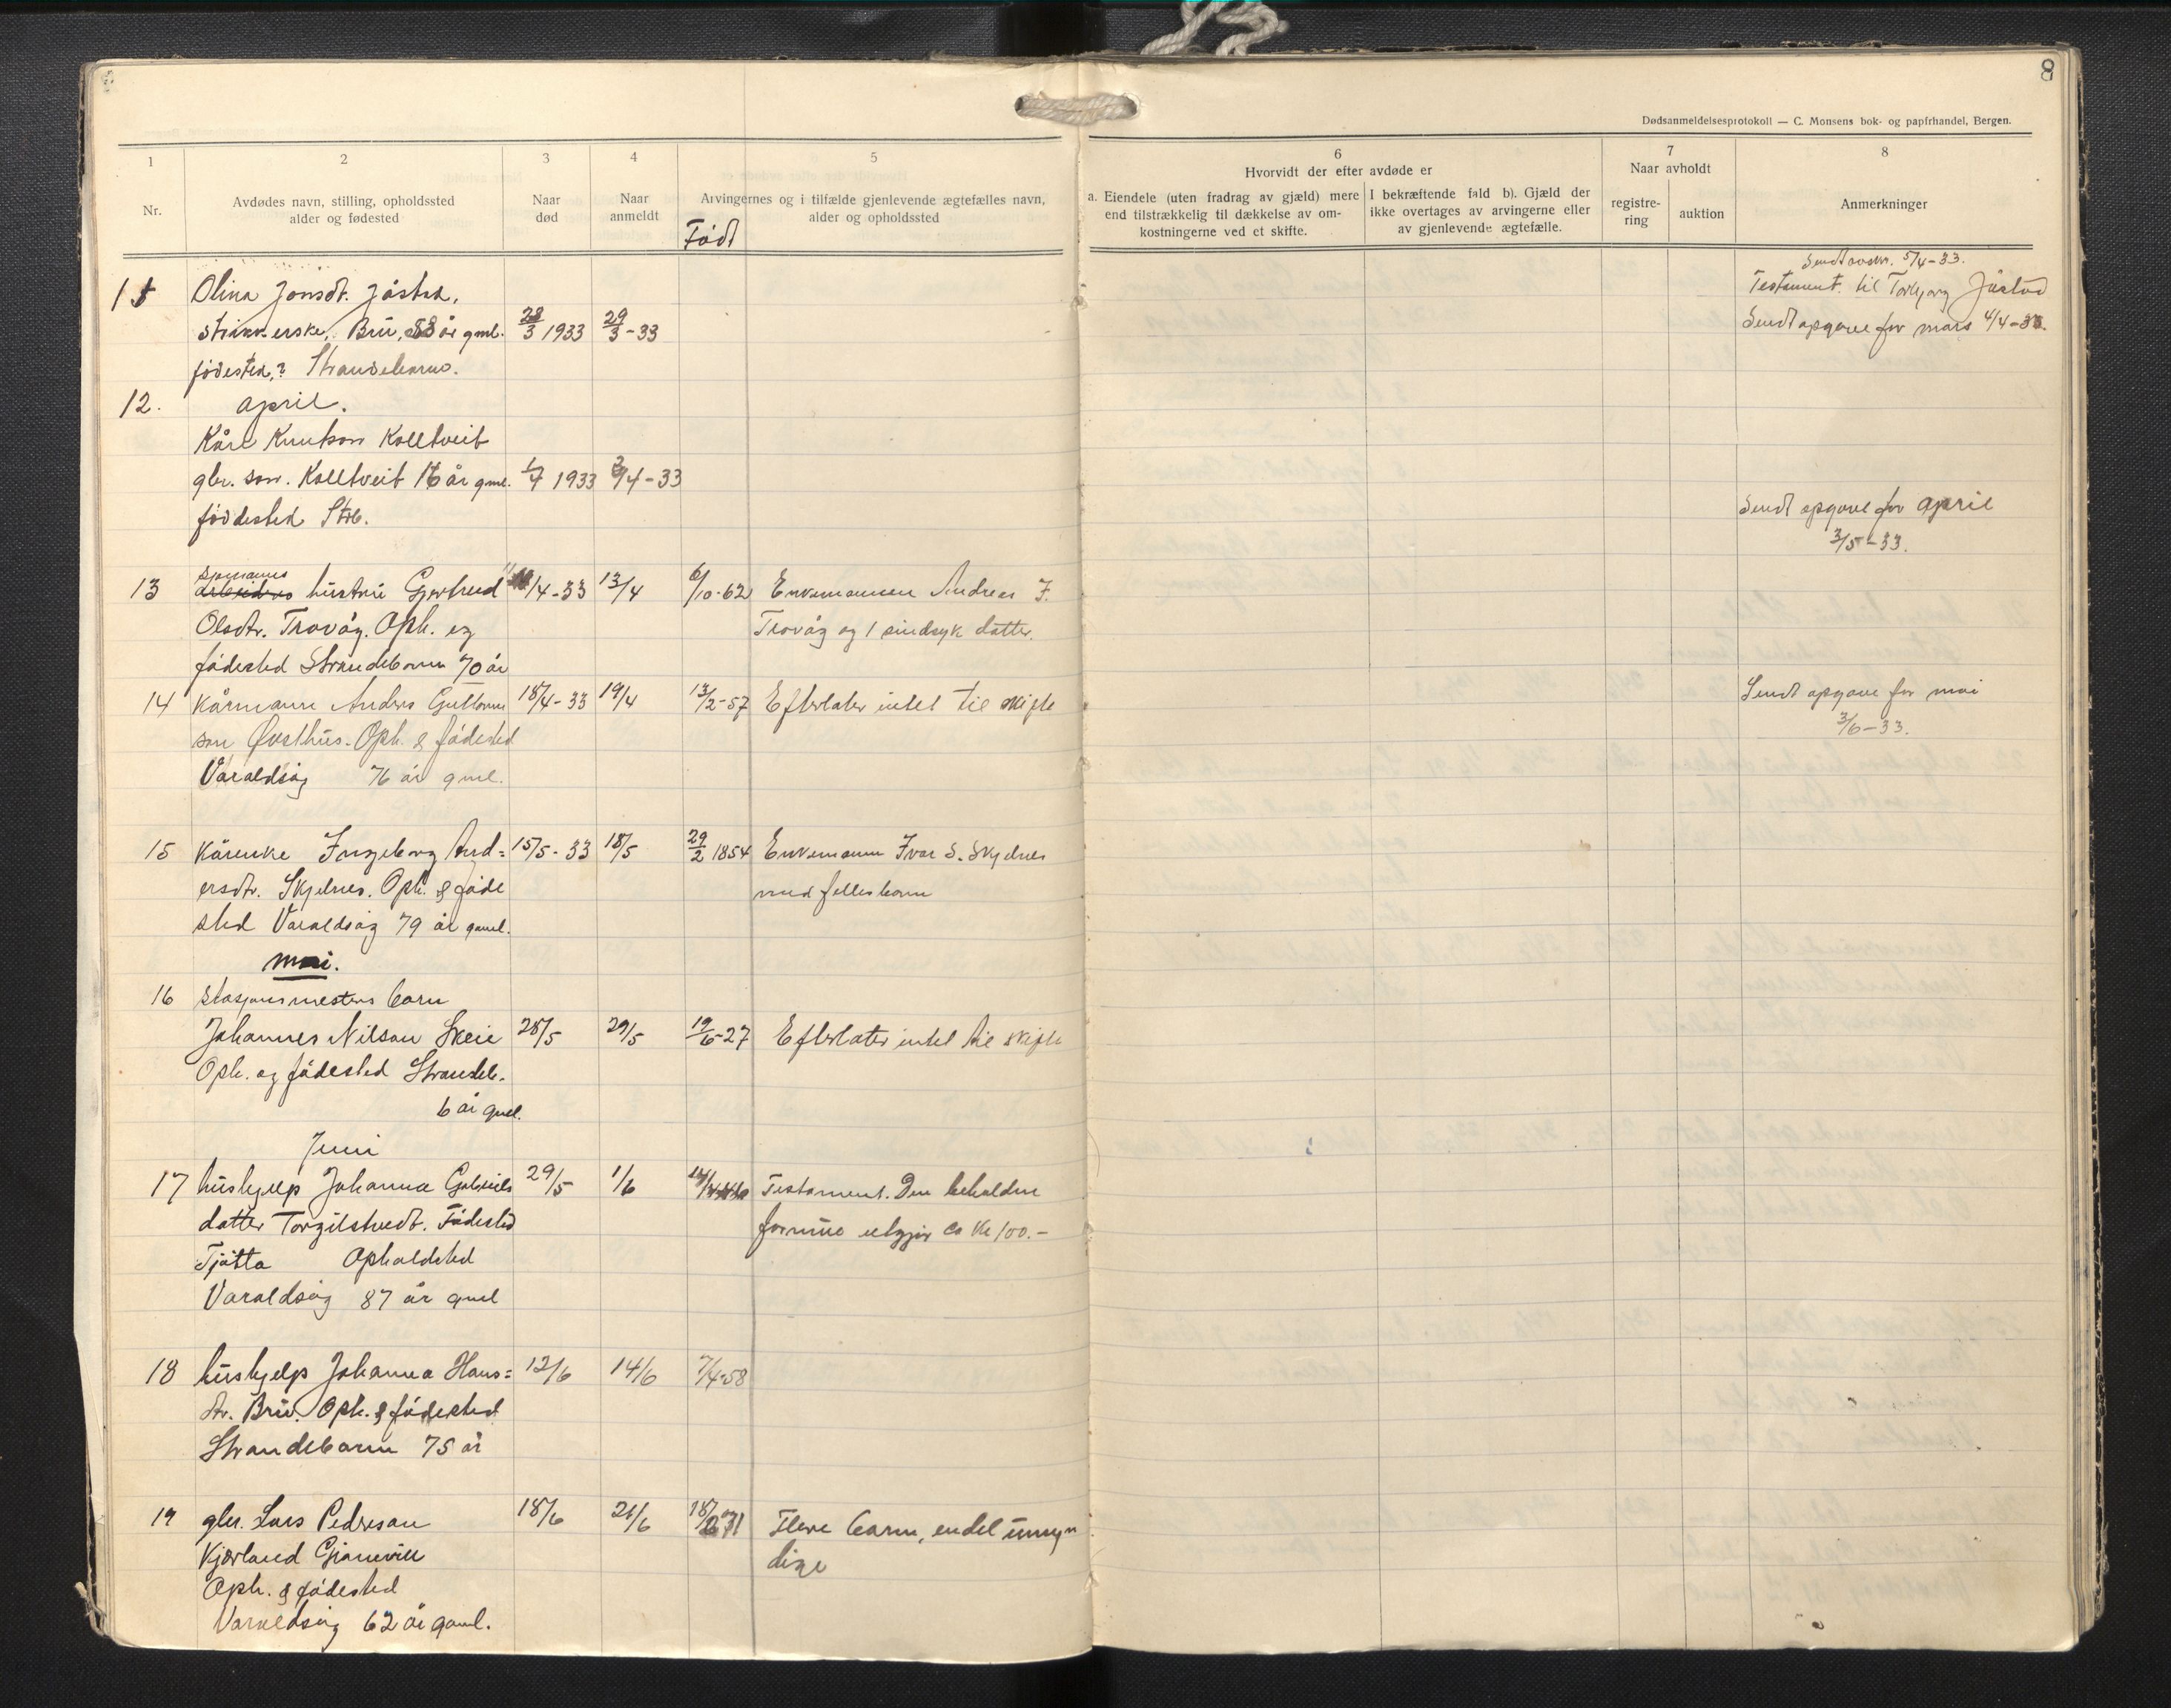 8
Dødsanmeldelsesprotokoll — C. Monsens bok- og papirhandel, Bergen.
1
2
3
4
5
6
7
8
Nr.
Avdødes navn, stilling, opholdssted
alder og fødested
Naar
død
Naar
anmeldt
Arvingernes og i tilfælde gjenlevende ægtefælles navn,
alder og opholdssted
Født
Hvorvidt der efter avdøde er
a. Eiendele (uten fradrag av gjæld) mere
end tilstrækkelig til dækkelse av om-
kostningerne ved et skifte.
I bekræftende fald b). Gjæld der
ikke overtages av arvingerne eller
av gjenlevende ægtefælle.
Naar avholdt
registre-
ring
auktion
Anmerkninger
Olina Jonsdt. Jåstad,
Bru, 88 år gml. 28/3 1933 29/3-33
fødested,? Strandebarm.
5/4-33.
Testament. til Torbjørg Jåstad
Sendt opgave for mars 4/4-33.
12. april.
Kåre Knutson Kolltveit
gbr. son. Kolltveit 16 år gml. 1/4 1933 /4-33
fødested Strb.
Sendt opgave for april
3/5-33.
13 arbeiders hustru Gjertrud /4-33 13/4 6/10-62 Enkemannen Andreas J.
Olsdtr. Trovåg. Oph. og Trovåg og 1 sindsyk datter.
fødested Strandebarm 70 år
14 Kårmann Anders Guttorm 18/4-33 19/4 13/2-57 Efterlater intet til skifte
son Øvsthus. Oph. & fødested
Varaldsøy 76 år gml.
Sendt opgave for mai
3/6-33.
15 Kårenke Ingeborg And= 15/5-33 18/5 29/2 1854 Enkemann Ivar S. Skjelnes
ersdtr. Skjelnes. Oph. & føde med felles barn
sted Varaldsøy 79 år gaml.
mai.
16 Stasjonsmesters barn
Johannes Nilsen Skeie 28/5 29/5 19/6-27 Efterlater intet til skifte
Oph. og fødested Strandeb.
6 år gml.
Juni
17 hushjelp Johanna Gabriels 29/5 1/6 Testament. Den beholdne
datter Torgilstvedt. Fødested formue utgjør ca Kr 100.-
Tjøtta Opholdsted
Varaldsøy 87 år gml
18 hushjelp Johanna Hans= 12/6 14/6 7/4-58
dtr. Bru. Oph. & fødested
Strandebarm 75 år
19 gbr. Lars Pederson 18/6 21/6 Flere barn, endel umyn
Kjærland dige
Oph. & fødested
Varaldsøy 62 år gaml.